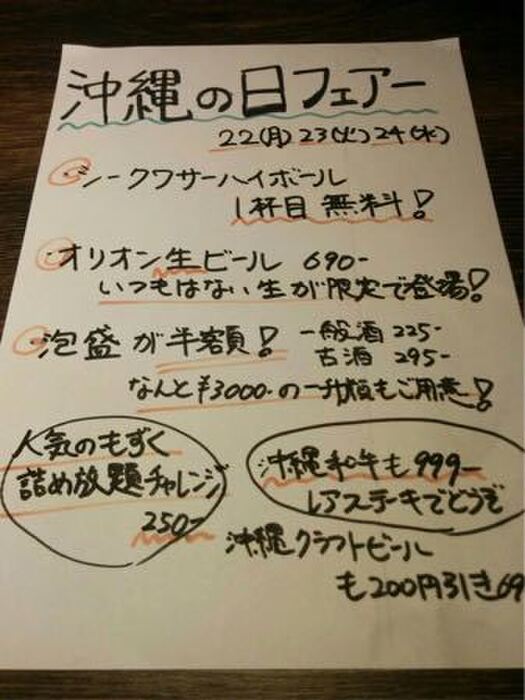 沖縄の日フェアー
22(月)23(火)24(水)
・シークワサーハイボール
1杯目無料!
・オリオン生ビール 690-
いつもはない生が限定で登場!
・泡盛が半額! 一般酒 225-
古酒 295-
なんと¥3000-の一升瓶もご用意!
人気のもずく
詰め放題チャレンジ
250-
沖縄和牛も999-
レアステーキでどうぞ
沖縄クラフトビール
も200円引き69